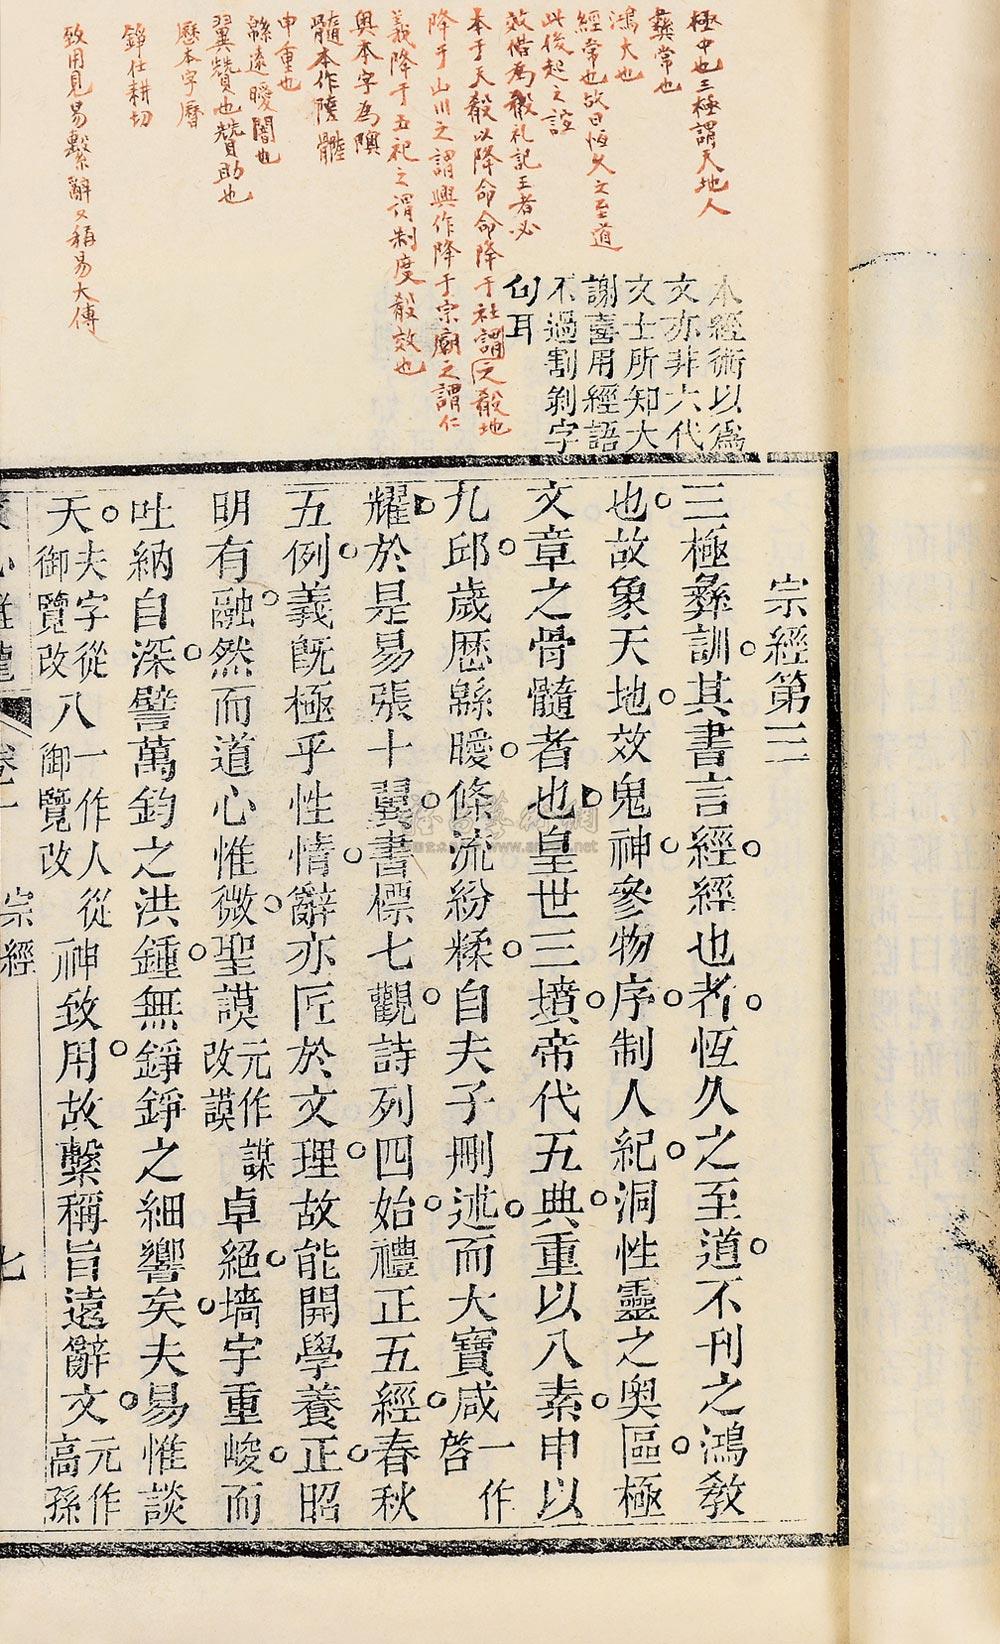 極中也三極謂天地人
彝常也
鴻大也
經常也故曰恆久之至道
此後起之誼
效借為殽礼記王者必
本于天殽以降命命降于社謂之殽地
降于山川之謂興作降于宗廟之謂仁
義降于五祀之謂制度殽效也
奥本字為隩
髓本作䯝
申重也
緜遠曖闇也
翼贊也贊助也
歷本字厤
錚仕耕切
致用見易繫辭又稱易大傳
本經術以為
文亦非六代
文士所知大
謝喜用經語
不過割剝字
句耳
宗經第三
三極彝訓其書言經經也者恆久之至道不刊之鴻教
也故象天地效鬼神參物序制人紀洞性靈之奧區極
文章之骨髓者也皇世三墳帝代五典重以八索申以
九邱歲歷緜曖條流紛糅自夫子刪述而大寶咸一作啓
耀於是易張十翼書標七觀詩列四始禮正五經春秋
五例義既極乎性情辭亦匠於文理故能開學養正昭
明有融然而道心惟微聖謨元作謀改謨卓絕墻宇重峻而
吐納自深譬萬鈞之洪鍾無錚錚之細響矣夫易惟談
天夫字從御覽改八一作人從御覽改神致用故繫稱旨遠辭文元作高孫
文心雕龍 卷一 宗經 七